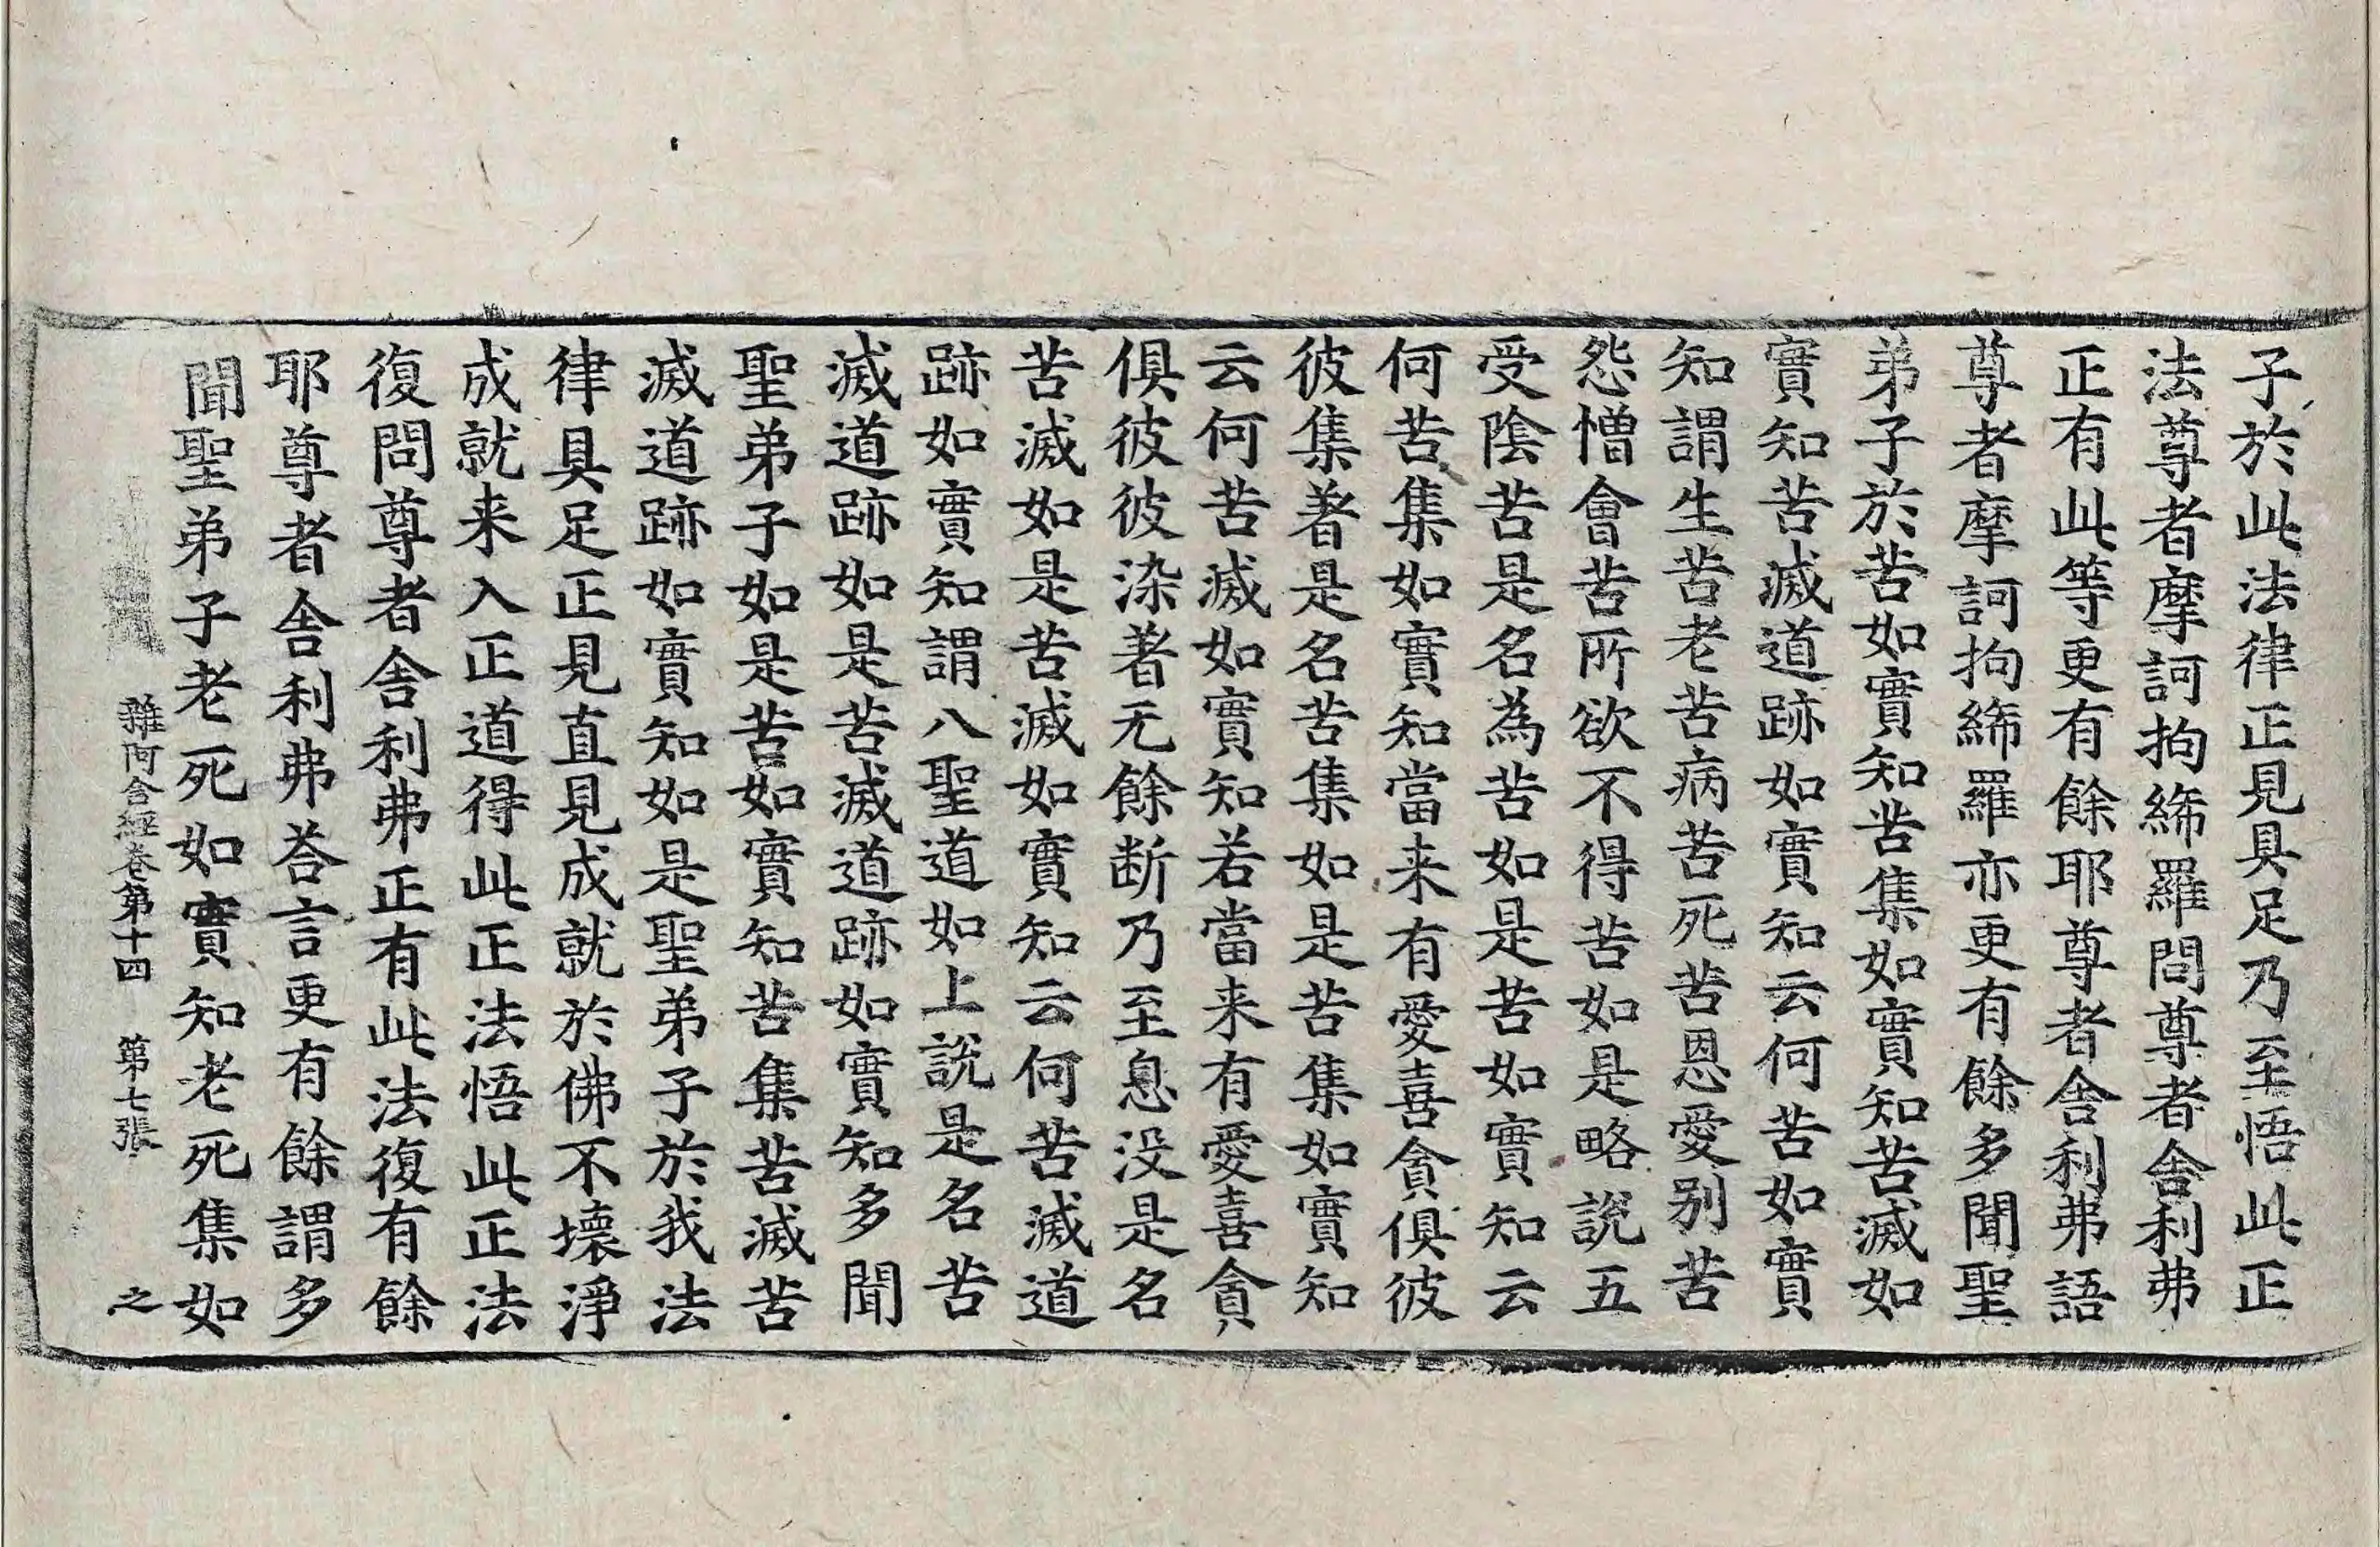 子於此法律正見具足乃至悟此正
法尊者摩訶拘絺羅問尊者舎利弗
正有此等更有餘耶尊者舎利弗語
尊者摩訶拘絺羅亦更有餘多聞聖
弟子於苦如實知苦集如實知苦滅如
實知苦滅道跡如實知云何苦如實
知謂生苦老苦病苦死苦恩愛別苦
怨憎會苦所欲不得苦如是略說五
受陰苦是名為苦如是苦如實知云
何苦集如實知當来有愛喜貪俱彼
彼集著是名苦集如是苦集如實知
云何苦滅如實知若當来有愛喜貪
俱彼彼染著无餘断乃至息没是名
苦滅如是苦滅如實知云何苦滅道
跡如實知謂八聖道如上說是名苦
滅道跡如是苦滅道跡如實知多聞
聖弟子如是苦如實知苦集苦滅苦
滅道跡如實知如是聖弟子於我法
律具足正見直見成就於佛不壊淨
成就来入正道得此正法悟此正法
復問尊者舎利弗正有此法復有餘
耶尊者舎利弗荅言更有餘謂多
聞聖弟子老死如實知老死集如
雜阿含經卷第十四 第七張 之